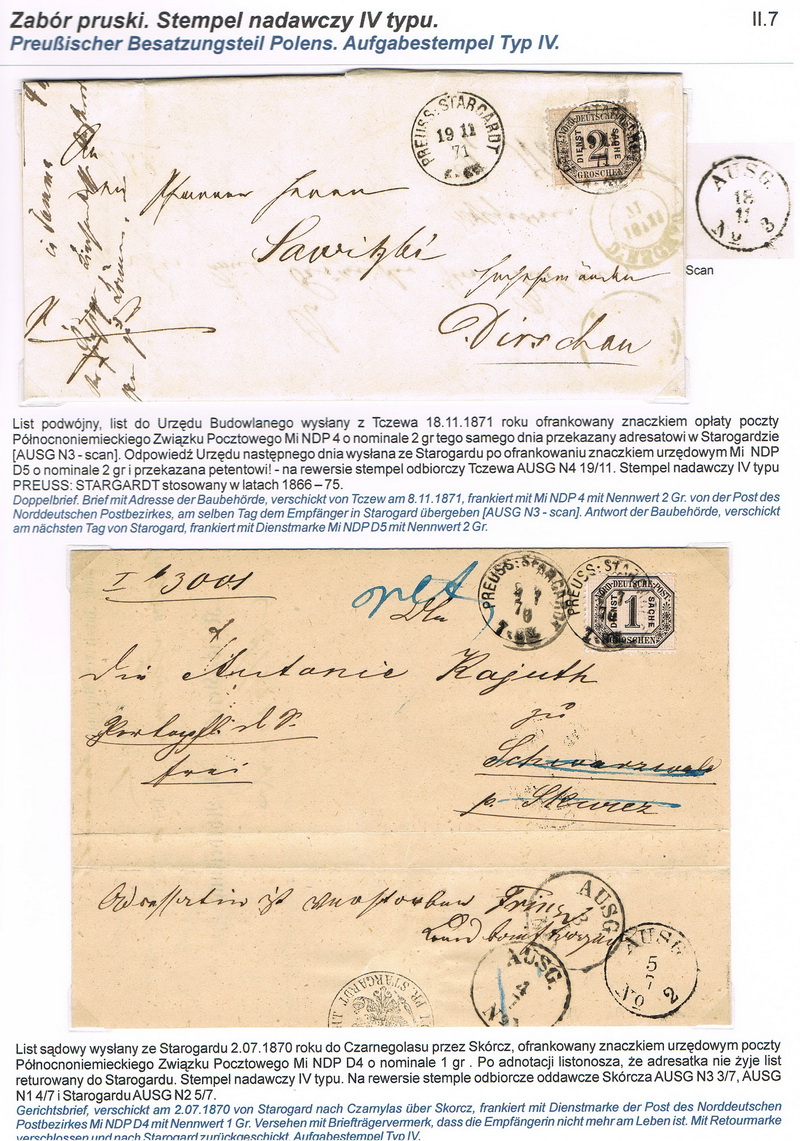 Zabór pruski. Stempel nadawczy IV typu.
II.7
Preußischer Besatzungsteil Polens. Aufgabestempel Typ IV.
PREUSS: STARGARDT
19 11
71
NORDDEUTSCHE POST
DIENST 2 SACHE
GROSCHEN
AUSG
18
11
No 3
Scan
An
den Pfarrer Herrn
Sawitzki
Dirschau
List podwójny, list do Urzędu Budowlanego wysłany z Tczewa 18.11.1871 roku ofrankowany znaczkiem opłaty poczty
Północnoniemieckiego Związku Pocztowego Mi NDP 4 o nominale 2 gr tego samego dnia przekazany adresatowi w Starogardzie
[AUSG N3 - scan]. Odpowiedź Urzędu następnego dnia wysłana ze Starogardu po ofrankowaniu znaczkiem urzędowym Mi NDP
D5 o nominale 2 gr i przekazana petentowi! - na rewersie stempel odbiorczy Tczewa AUSG N4 19/11. Stempel nadawczy IV typu
PREUSS: STARGARDT stosowany w latach 1866 – 75.
Doppelbrief. Brief mit Adresse der Baubehörde, verschickt von Tczew am 8.11.1871, frankiert mit Mi NDP 4 mit Nennwert 2 Gr. von der Post des
Norddeutschen Postbezirkes, am selben Tag dem Empfänger in Starogard übergeben [AUSG N3 - scan]. Antwort der Baubehörde, verschickt
am nächsten Tag von Starogard, frankiert mit Dienstmarke Mi NDP D5 mit Nennwert 2 Gr.
PREUSS: STARGARDT
70
PREUSS: STARGARDT
NORDDEUTSCHE POST
DIENST 1 SACHE
GROSCHEN
die Antonie Kajuth
zu
Schwarzwald
p. Skurcz
frei
Adressatin ist verstorben
AUSG
AUSG
5
7
No 2
AUSG
PR. STARGARDT
List sądowy wysłany ze Starogardu 2.07.1870 roku do Czarnegolasu przez Skórcz, ofrankowany znaczkiem urzędowym poczty
Północnoniemieckiego Związku Pocztowego Mi NDP D4 o nominale 1 gr . Po adnotacji listonosza, że adresatka nie żyje list
returowany do Starogardu. Stempel nadawczy IV typu. Na rewersie stemple odbiorcze oddawcze Skórcza AUSG N3 3/7, AUSG
N1 4/7 i Starogardu AUSG N2 5/7.
Gerichtsbrief, verschickt am 2.07.1870 von Starogard nach Czarnylas über Skorcz, frankiert mit Dienstmarke der Post des Norddeutschen
Postbezirkes Mi NDP D4 mit Nennwert 1 Gr. Versehen mit Briefträgervermerk, dass die Empfängerin nicht mehr am Leben ist. Mit Retourmarke
verschlossen und nach Starogard zurückgeschickt. Aufgabestempel Typ IV.